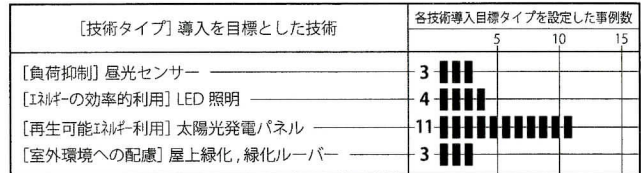 [技術タイプ] 導入を目標とした技術
各技術導入目標タイプを設定した事例数
5 10 15
[負荷抑制] 昼光センサー 3
[エネルギーの効率的利用] LED 照明 4
[再生可能エネルギー利用] 太陽光発電パネル 11
[室外環境への配慮] 屋上緑化,緑化ルーバー 3